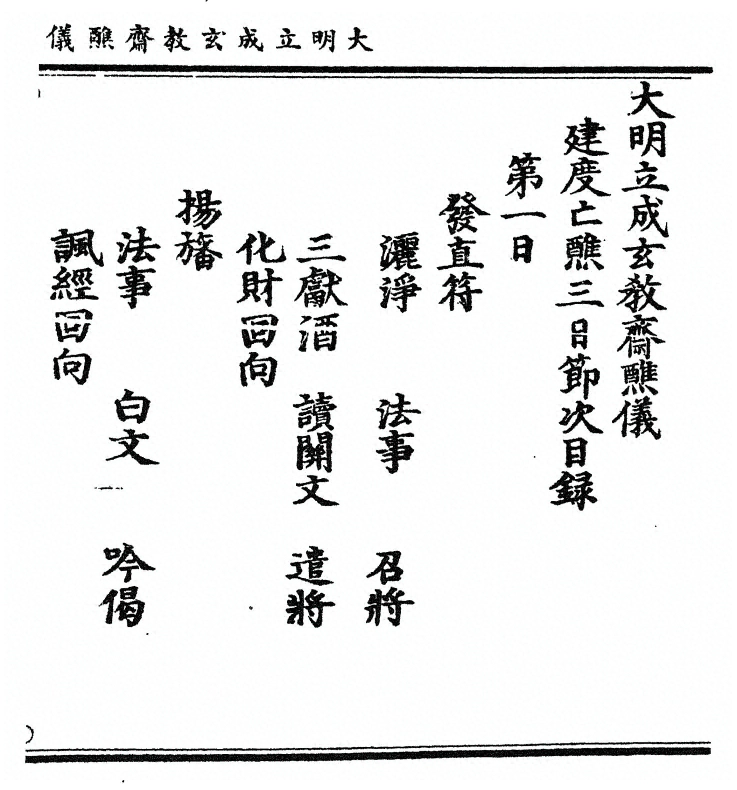 大明立成玄教齋醮儀
大明立成玄教齋醮儀
建度亡醮三日節次目録
第一日
發直符
灑淨　法事　召將
三獻酒　讀關文　遣將
化財回向
揚旛
法事　白文　吟偈
諷經回向